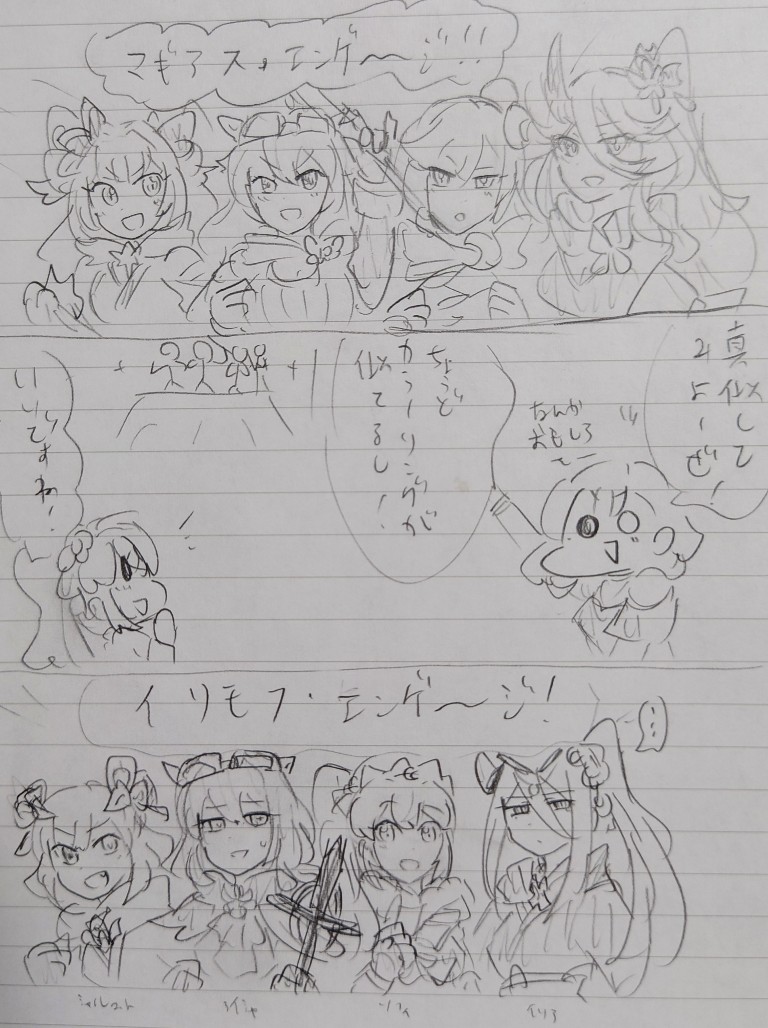 マギアス・エンゲ〜ジ!!
真似して
みよーぜ!
なんか
おもしろ
てー
ちょうど
カラーリングが
似てるし!
いいですね!
イリモフ・エンゲ〜ジ!
…
シャルロット
ソフィ
イリア